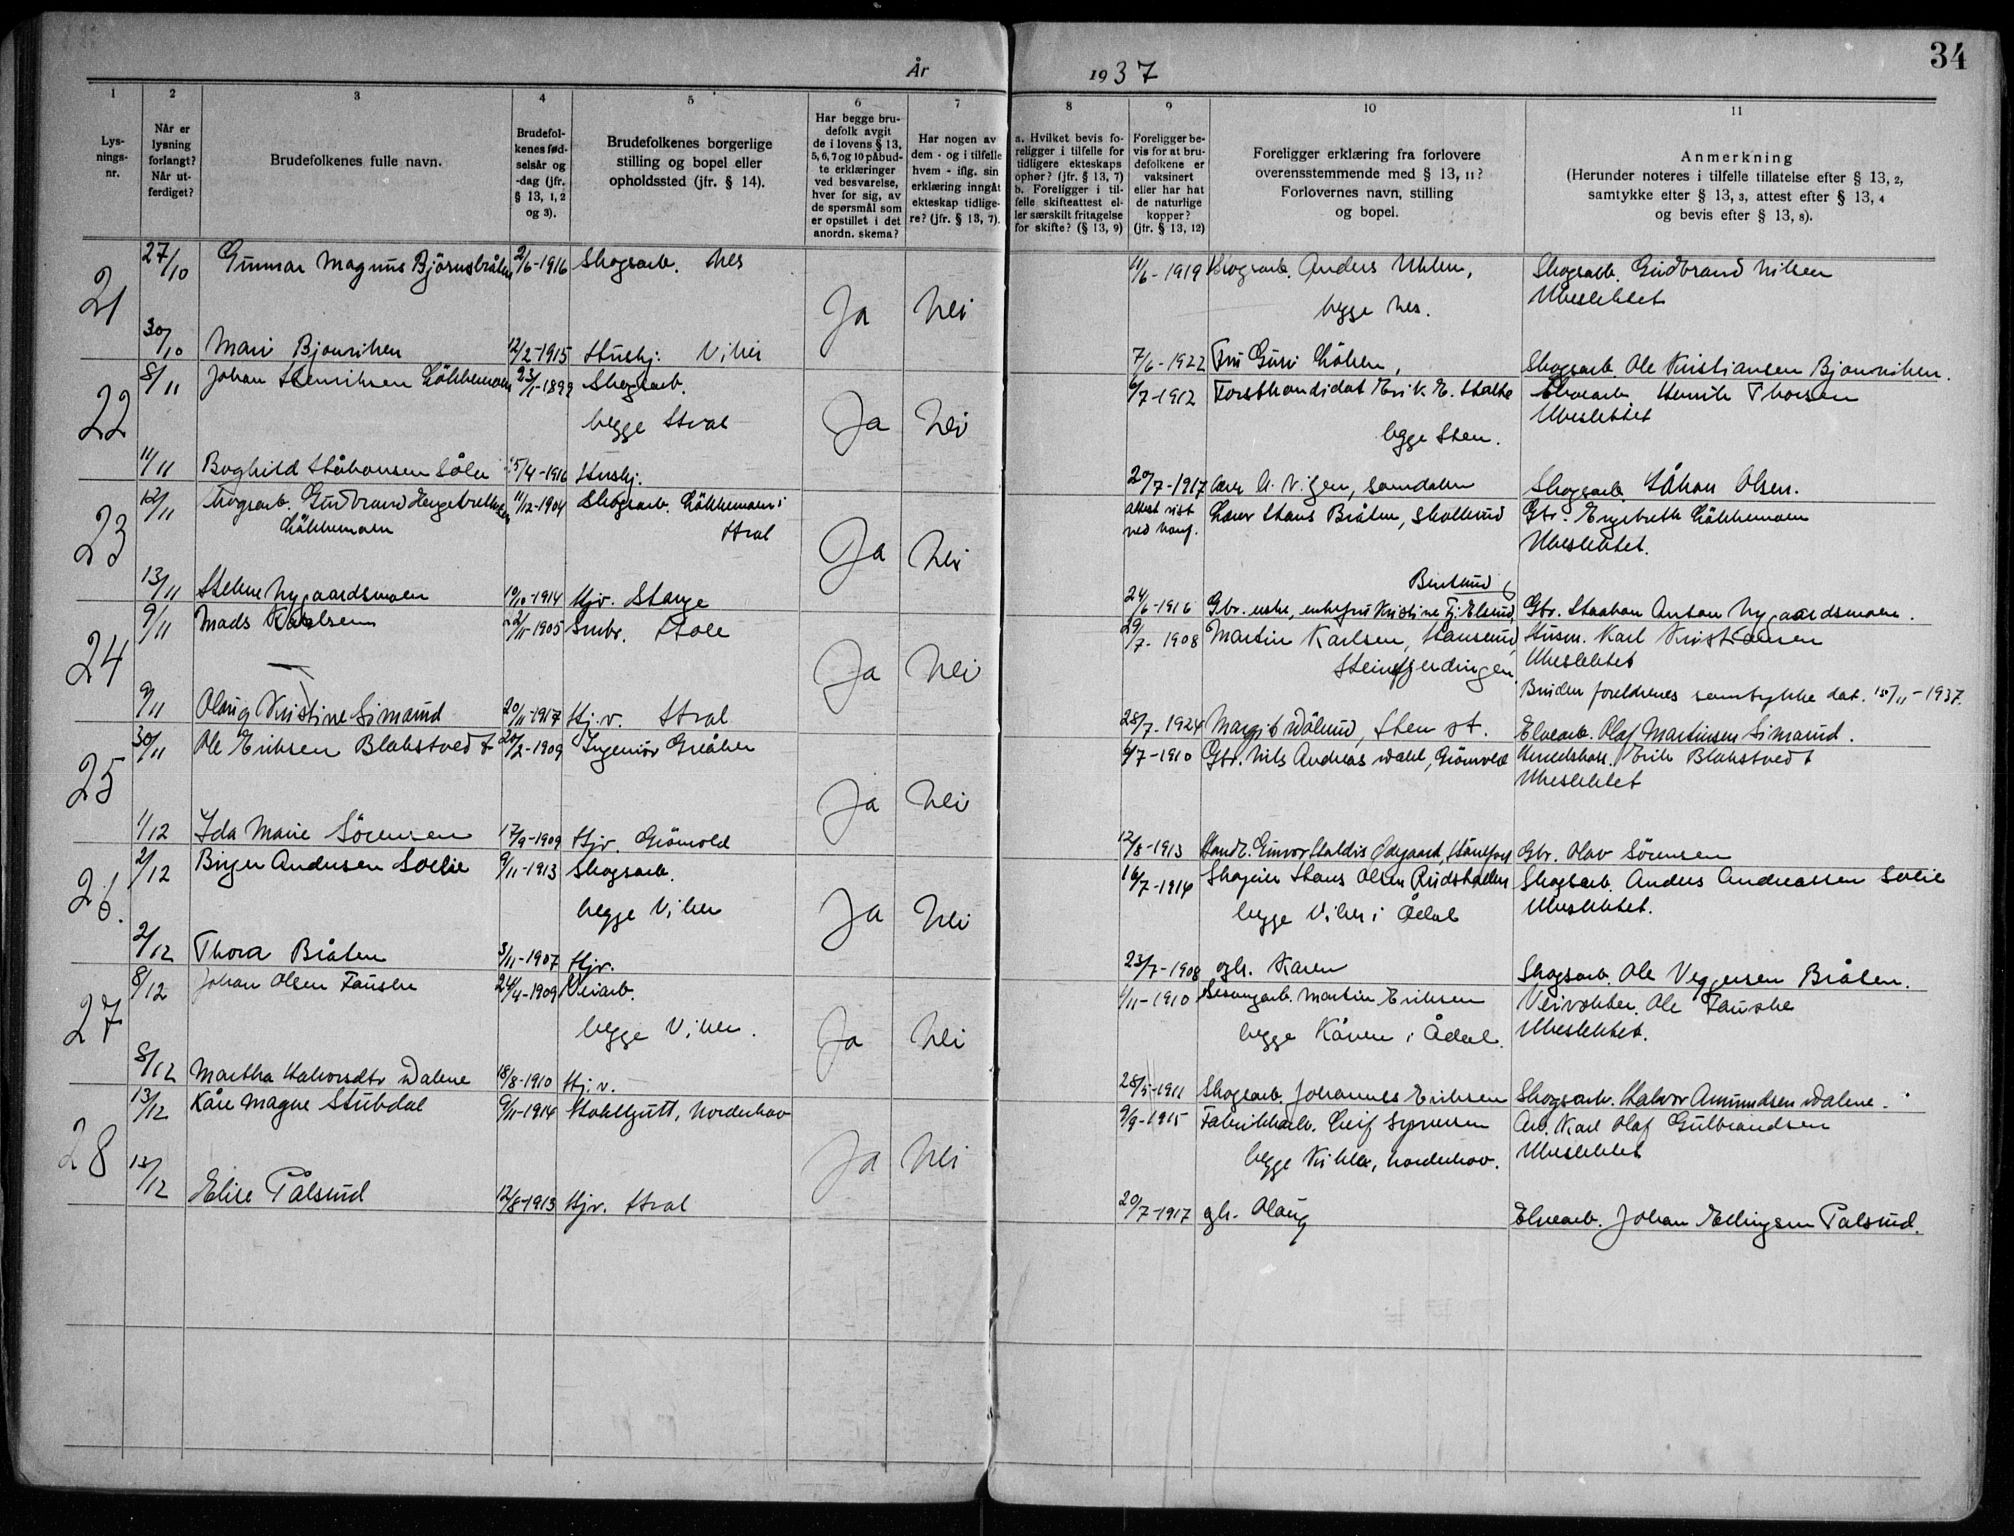 34
År 1937
1 2 3 4 5 6 7 8 9 10 11
Lysningsnr.
Når er lysning forlangt? Når utferdiget?
Brudefolkenes fulle navn.
Brudefolkenes fødselsår og -dag (jfr. § 13, 1, 2 og 3).
Brudefolkenes borgerlige stilling og bopel eller opholdssted (jfr. § 14).
Har begge brudefolk avgit de i lovens § 13, 5, 6, 7 og 10 påbudte erklæringer ved besvarelse, hver for sig, av de spørsmål som er opstillet i det anordn. skema?
Har nogen av dem - og i tilfelle hvem - iflg. sin erklæring inngåt ekteskap tidligere? (jfr. § 13, 7).
a. Hvilket bevis foreligger i tilfelle for tidligere ekteskaps ophør? (jfr. § 13, 7) b. Foreligger i tilfelle skifteattest eller særskilt fritagelse for skifte? (§ 13, 9)
Foreligger bevis for at brudefolkene er vaksinert eller har hat de naturlige kopper? (jfr. § 13, 12)
Foreligger erklæring fra forlovere overensstemmende med § 13, 11? Forlovernes navn, stilling og bopel.
Anmerkning (Herunder noteres i tilfelle tillatelse efter § 13, 2, samtykke efter § 13, 3, attest efter § 13, 4 og bevis efter § 13, 8).
21 27/10 Gunnar Magnus Bjørnsbråten 2/6-1916 Skogsarb. Nes Ja Nei 11/6-1919 Skogsarb. Anders Uhlen, Skogsarb. Gudbrand Nilsen
begge Nes. Ubeslektet
30/10 Mari Bjonviken 12/2-1915 Hushj. Viker 7/6-1922 Fru Guri Løken, Skogsarb. Ole Kristiansen Bjonviken.
22 8/11 Johan Henriksen Løkkemoen 23/1-1899 Skogsarb. Ja Nei 6/7-1912 Forstkandidat Erik E. Elvearb. Henrik Thorsen
begge Hval begge Sten. Ubeslektet
11/11 Håkonsen 5/4-1916 Hushj. 20/7-1917 Skogsarb. Håkon Olsen.
23 12/11 Skogsarb. Gudbrand Engebrethsen Løkkemoen 11/12-1904 Skogsarb. Løkkemoen i Hval Ja Nei attest vist ved konf. Lærer Hans Bråten, Gbr. Engebreth Løkkemoen
Ubeslektet.
13/11 Helene Nygaardsmoen 10/10-1914 Hjv. Stange 24/6-1916 Gbr. enke, enkefru Kristine Gbr. Haakon Anton Nygaardsmoen.
24 9/11 Mads Karlsen 22/11-1905 Smbr. Hole Ja Nei 29/7-1908 Martin Karlsen, Husm. Karl Kristiansen
Steinsfjerdingen. Ubeslektet
Bruden foreldrenes samtykke dat. 15/11-1937.
9/11 Olaug Kristine Simarud 20/11-1917 Hj.v. Hval 28/7-1924 Margit Sten st. Elvearb. Olaf Martinsen Simarud.
25 30/11 Ole Eriksen Blakstvedt 20/2-1909 Ingeniør Gråker Ja Nei 6/7-1910 Gbr. Nils Andreas Dahl, Grønvold Erik Blakstvedt
Ubeslektet
1/12 Ida Marie Sørensen 17/9-1909 Hjv. Grönvold 12/8-1913 Gunvor Haldis Ødegaard, Hønefoss Gbr. Olav Sørensen
26. 2/12 Birger Andersen Soelie 9/11-1913 Skogsarb. Ja Nei 16/7-1914 Skogeier Hans Olsen Skogsarb. Anders Andreassen Solie
begge Viker begge Viker i Ådal Ubeslektet.
2/12 Thora Bråten 3/11-1907 Hjv. 23/7-1908 ogh. Karen Skogsarb. Ole Veggersen Bråten.
27 8/12 Johan Olsen Fauske 24/4-1909 Veiarb. Ja Nei 1/11-1910 Martin Eriksen Veivokter Ole Fauske
begge Viker. begge i Ådal. Ubeslektet.
8/12 Martha Halvorsdtr Dalene 18/8-1910 Hj.v. 28/5-1911 Skogsarb. Johannes Eriksen Skogsarb. Halvor Amundsen Dalene.
28 13/12 Kåre Magne Stubdal 9/11-1914 Norderhov Ja Nei 9/9-1915 Fabrikkarb. Leif Syversen Arb. Karl Olaf Gulbrandsen
begge Norderhov. Ubeslektet
13/12 Elise Pålsrud 12/8-1913 Hjv. Hval 20/7-1917 Olaug Elvearb. Johan Ellingsen Palsrud.